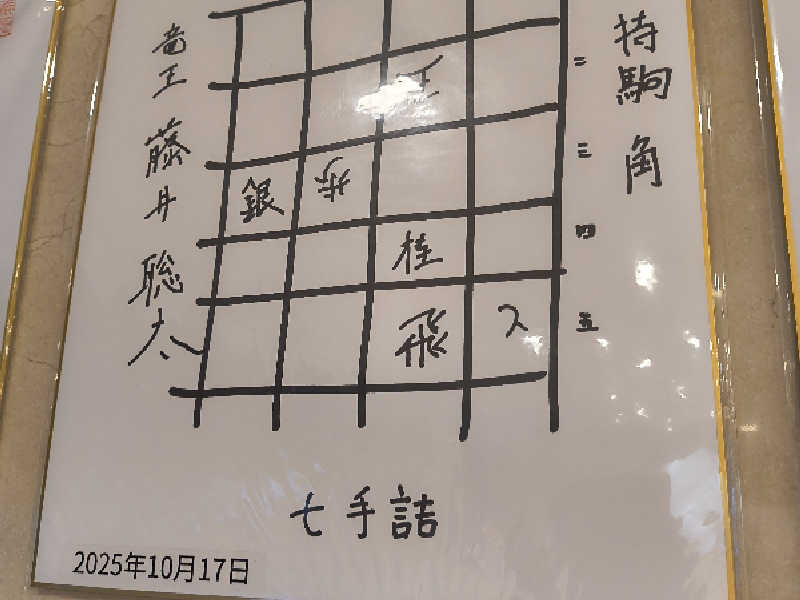 持駒 角
王
二
三
銀 歩
四
桂
五
飛 と
竜王 藤井 聡太
七手詰
2025年10月17日